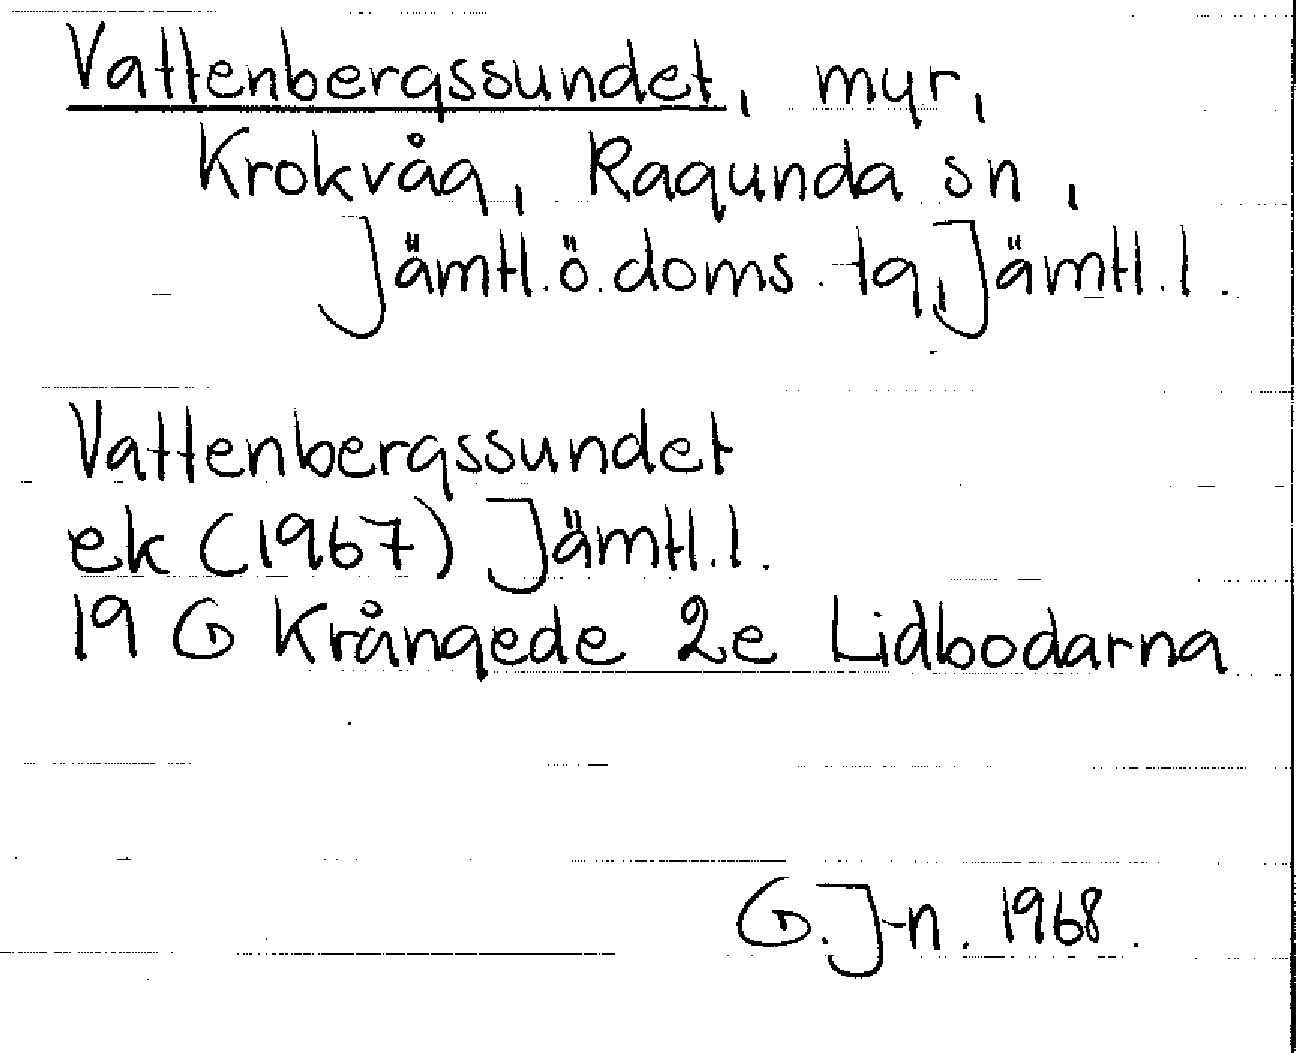 Vattenbergssundet, myr,
Krokvåg, Ragunda sn,
Jämtl.ö.doms.tg, Jämtl.l.
Vattenbergssundet
ek (1967) Jämtl.l.
19 G Krångede 2e Lidbodarna
G.J-n. 1968.